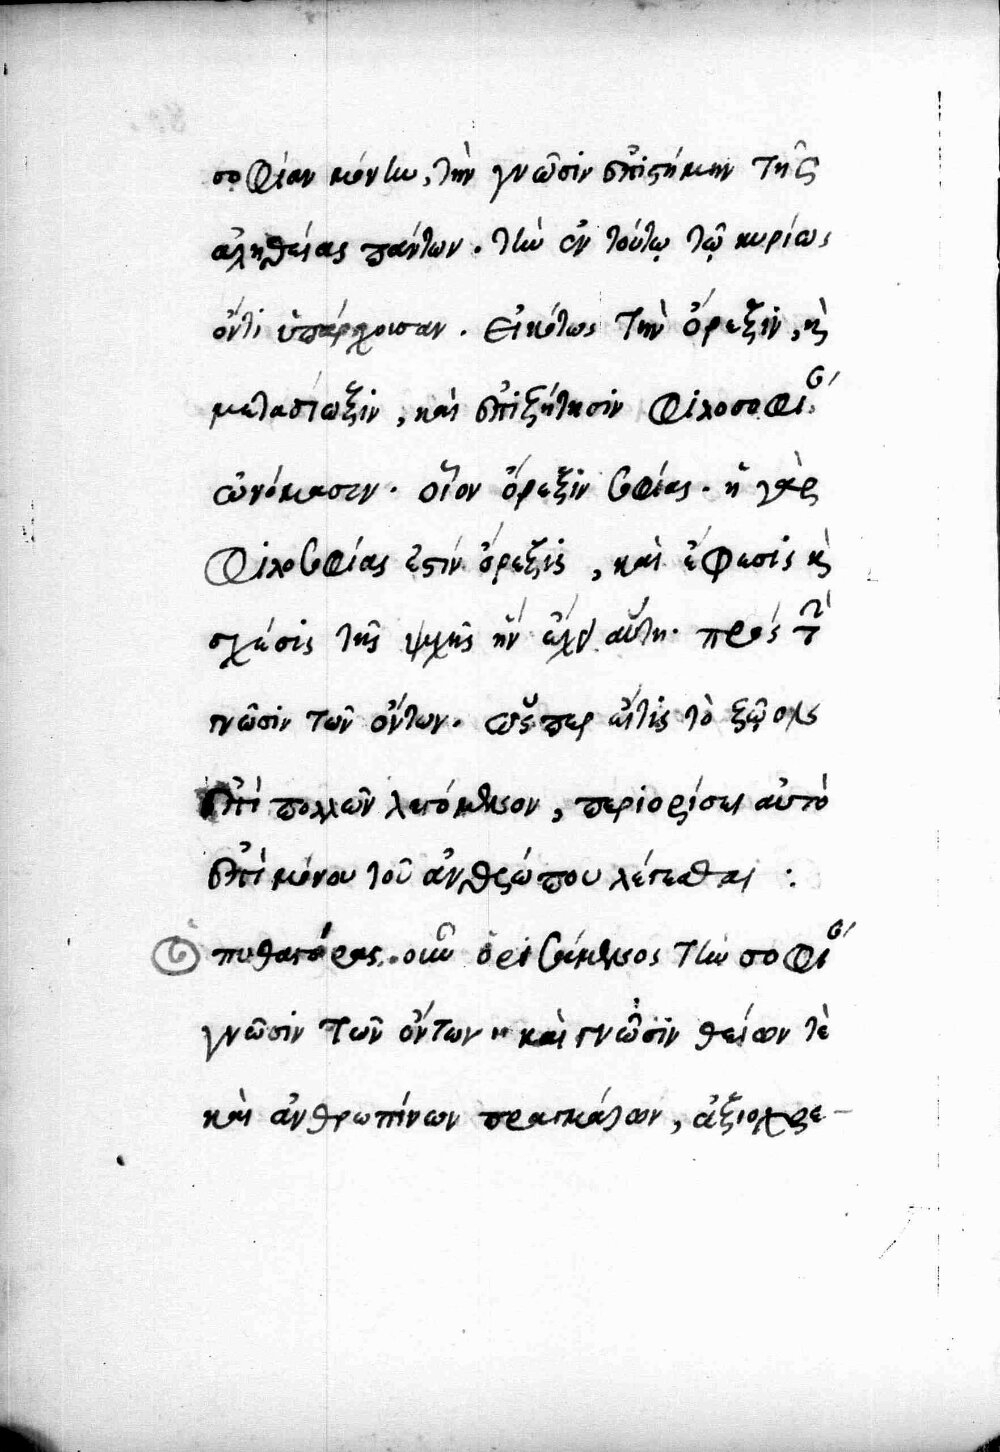 σοφίαν μόνην, τὴν γνῶσιν ἐπιστήμην τῆς
ἀληθείας πάντων. τὴν ἐν τούτῳ τῷ κυρίως
ὄντι ὑπάρχουσαν. εἰκότως τὴν ὄρεξιν, καὶ
μεταδίωξιν, καὶ ἐπιζήτησιν φιλοσοφίαν
ὠνόμασεν. οἷον ὄρεξιν σοφίας. ἡ γὰρ
φιλοσοφίας ἐστὶν ὄρεξις, καὶ ἔφεσις καὶ
σχέσις τῆς ψυχῆς ἣν ἔχει αὕτη. πρός τὴν
γνῶσιν τῶν ὄντων. ὥσπερ εἴτις τὸ ζῷον
ἐπὶ πολλῶν λεγόμενον, περιορίσει αὐτὸ
ἐπὶ μόνου τοῦ ἀνθρώπου λέγεσθαι :
πυθαγόρας. οὖν ὁρισάμενος τὴν σοφίαν
γνῶσιν τῶν ὄντων " καὶ γνῶσιν θείων τὲ
καὶ ἀνθρωπίνων πραγμάτων, ἀξιοχρε-